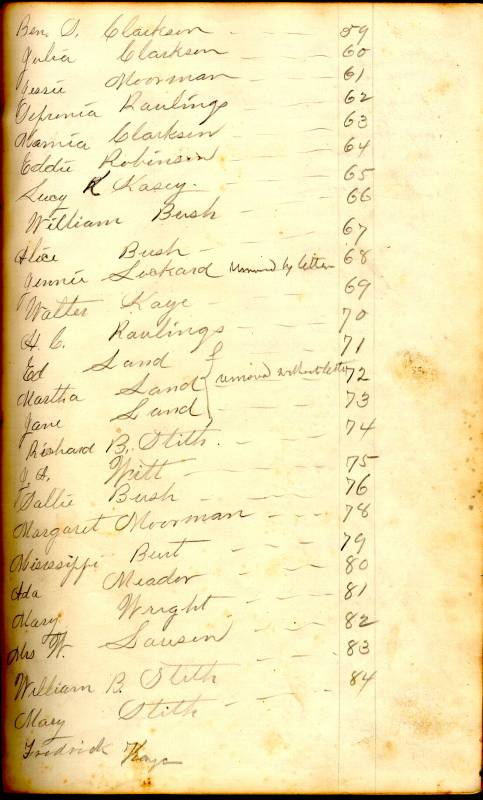 Ben. S. Clarkson - - - 59
Julia Clarkson - - - 60
Jessie Moorman - - - 61
Sepronia Rawlings - - - 62
Mamia Clarkson - - - 63
Eddie Robinson - - - 64
Lucy K Kasey. - - - 65
William Bush - - - 66
Alice Bush - - - 67
Jennie Lockard removed by letter 68
Walter Kaye - - - 69
H. C. Rawlings - - - 70
Ed Sand - - - 71
Martha Sand removed without letter 72
Jane Sand - - 73
Richard B. Stith. - - - 74
J. A. Witt - - - 75
Sallie Bush - - - 76
Margaret Moorman - - - 78
Mississippi Burt - - - 79
Ada Meador - - - 80
Mary Wright - - - 81
Mrs W. - - - 82
William B. Stith - - - 83
Mary Stith - - - 84
Fredrick Kaye